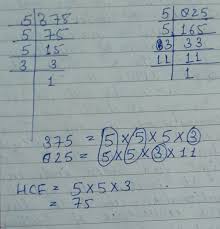 5 | 375
5 | 75
5 | 15
3 | 3
1
5 | 825
5 | 165
3 | 33
11 | 11
1
375 = 5 × 5 × 5 × 3
825 = 5 × 5 × 3 × 11
HCF = 5 × 5 × 3
= 75